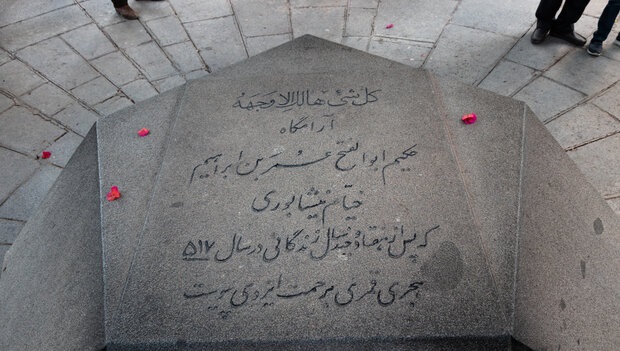 كل شئ هالك الا وجهه
آرامگاه
حکیم ابوالفتح عمر بن ابراهیم
خیام نیشابوری
که پس از هفتاد و چند سال زندگانی در سال ۵۱۷
هجری قمری برحمت ایزدی پیوست